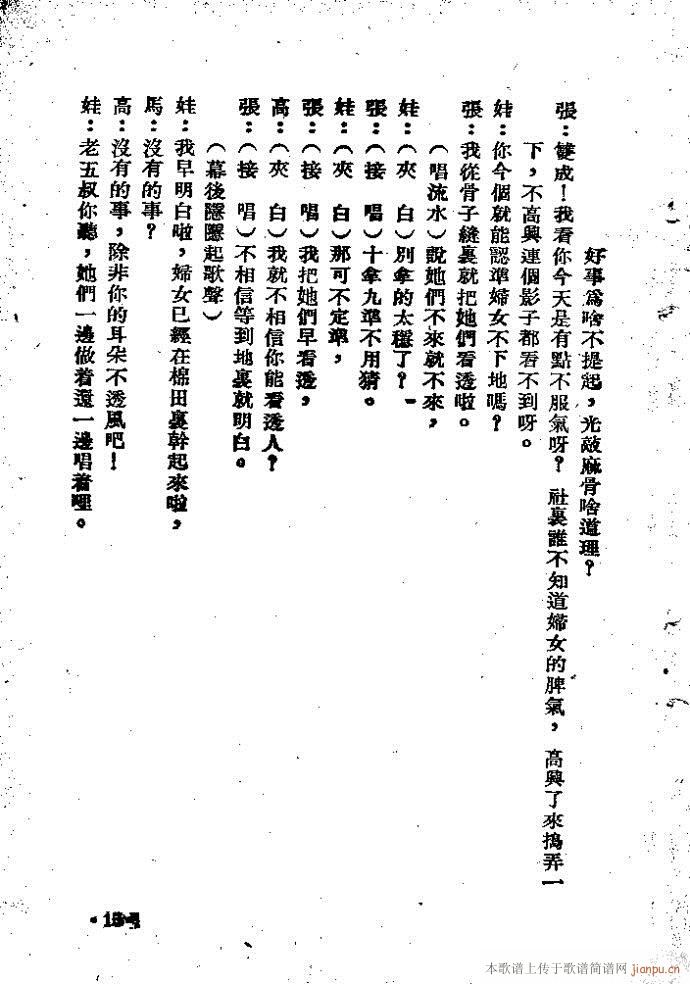 好事爲啥不提起，光敲麻骨啥道理？
張：雙成！我看你今天是有點不服氣呀？社裏誰不知道婦女的脾氣，高興了來搗弄一
下，不高興連個影子都看不到呀。
娃：你今個就能認準婦女不下地嗎？
張：我從骨子縫裏就把她們看透啦。
（唱流水）說她們不來就不來，
娃：（夾　白）別拿的太穩了？
張：（接　唱）十拿九準不用猜。
娃：（夾　白）那可不定準，
張：（接　唱）我把她們早看透，
高：（夾　白）我就不相信你能看透人？
張：（接　唱）不相信等到地裏就明白。
（幕後隱隱起歌聲）
娃：我早明白啦，婦女已經在棉田裏幹起來啦，
馬：沒有的事？
高：沒有的事，除非你的耳朵不透風吧！
娃：老五叔你聽，她們一邊做着還一邊唱着哩。
本歌谱上传于歌谱简谱网 jianpu.cn